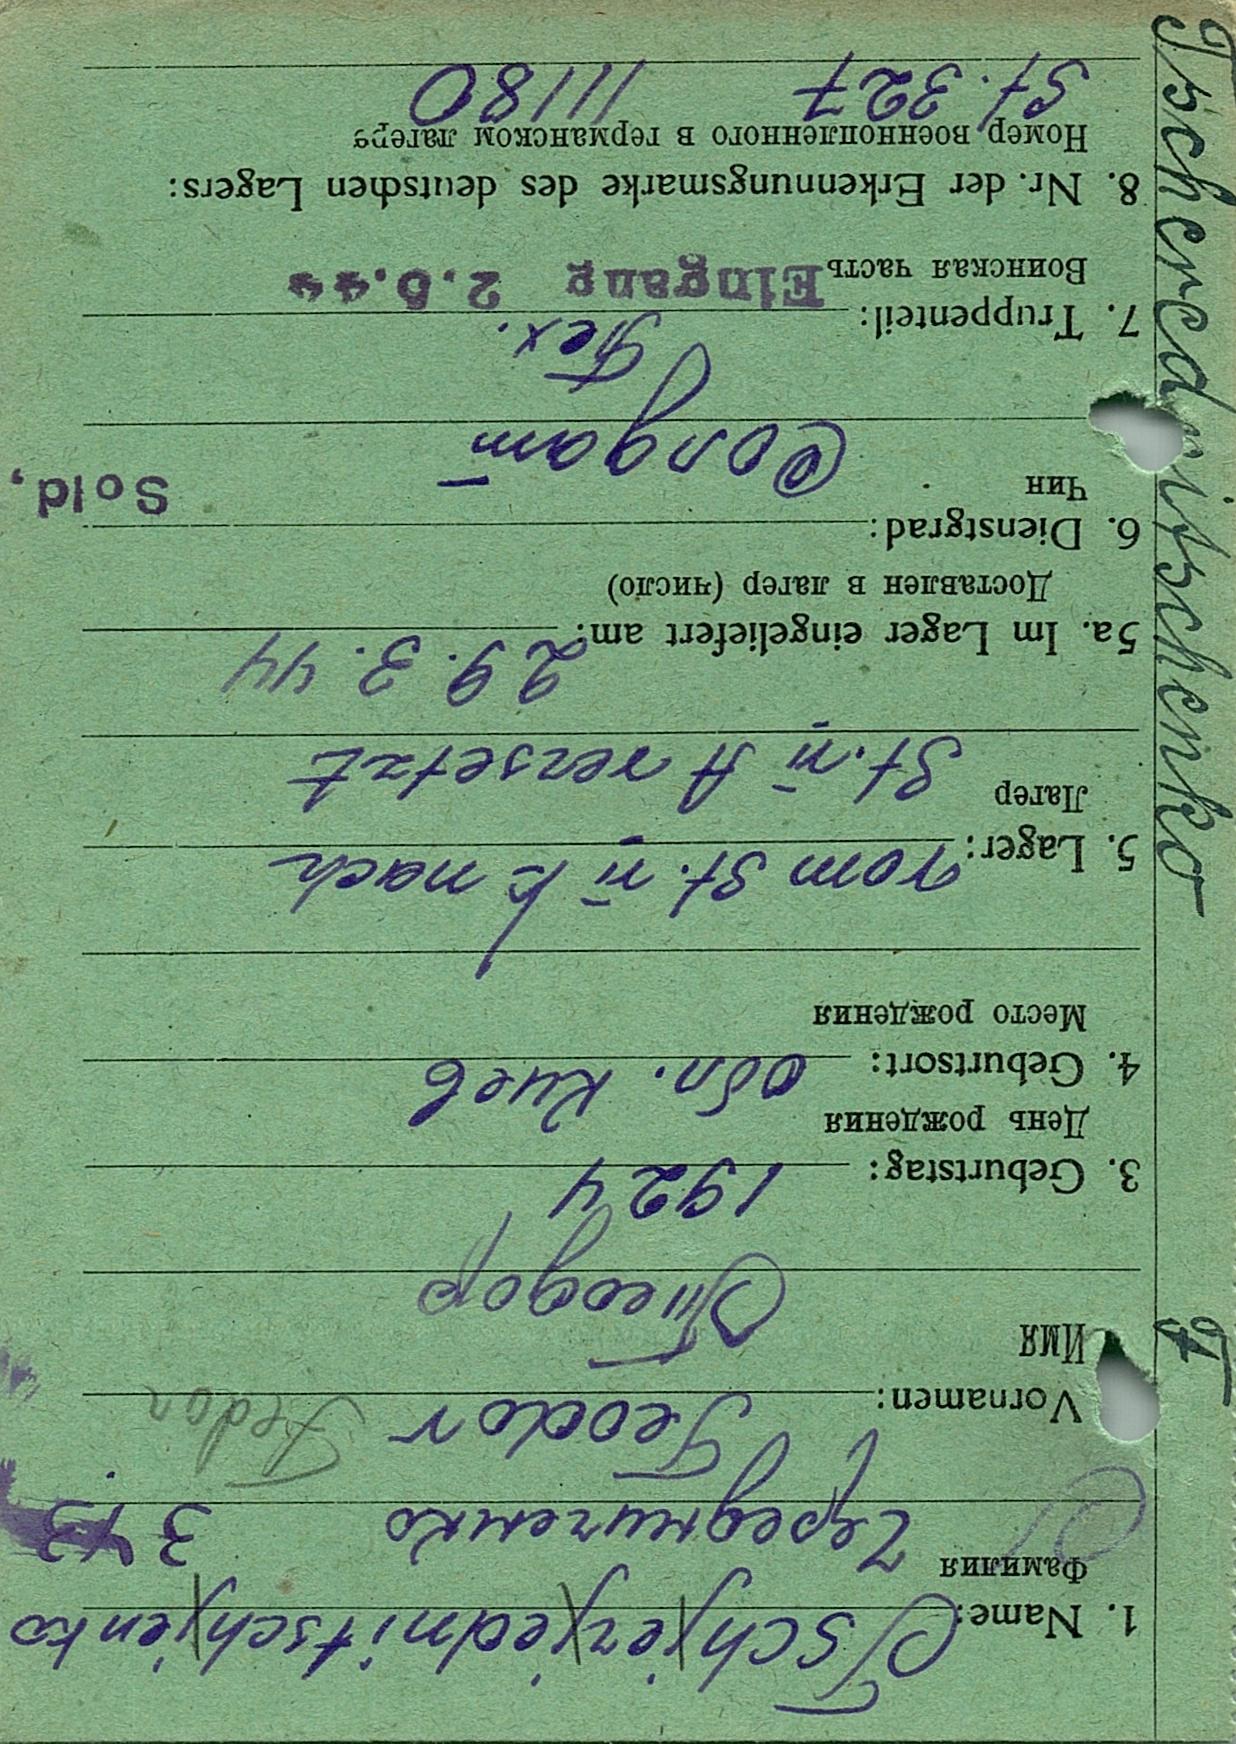 Tscherednitschenko F
1. Name: Tschjerjednitschjenko
Фамилия Чередниченко 3
Vornamen: Feodor Fedor
Имя Фиодор
3. Geburtstag: 1924
День рождения
4. Geburtsort: обл. Киев
Место рождения
5. Lager: vom St. II B nach
Лагер St. II A versetzt
5a. Im Lager eingeliefert am: 29. 3. 44
Доставлен в лагер (число)
6. Dienstgrad: Sold.
Чин Солдат
7. Truppenteil: Tex.
Воинская часть Eingang 2.6.44
8. Nr. der Erkennungsmarke des deutschen Lagers:
Номер военнопленного в германском лагере
St. 327 11180